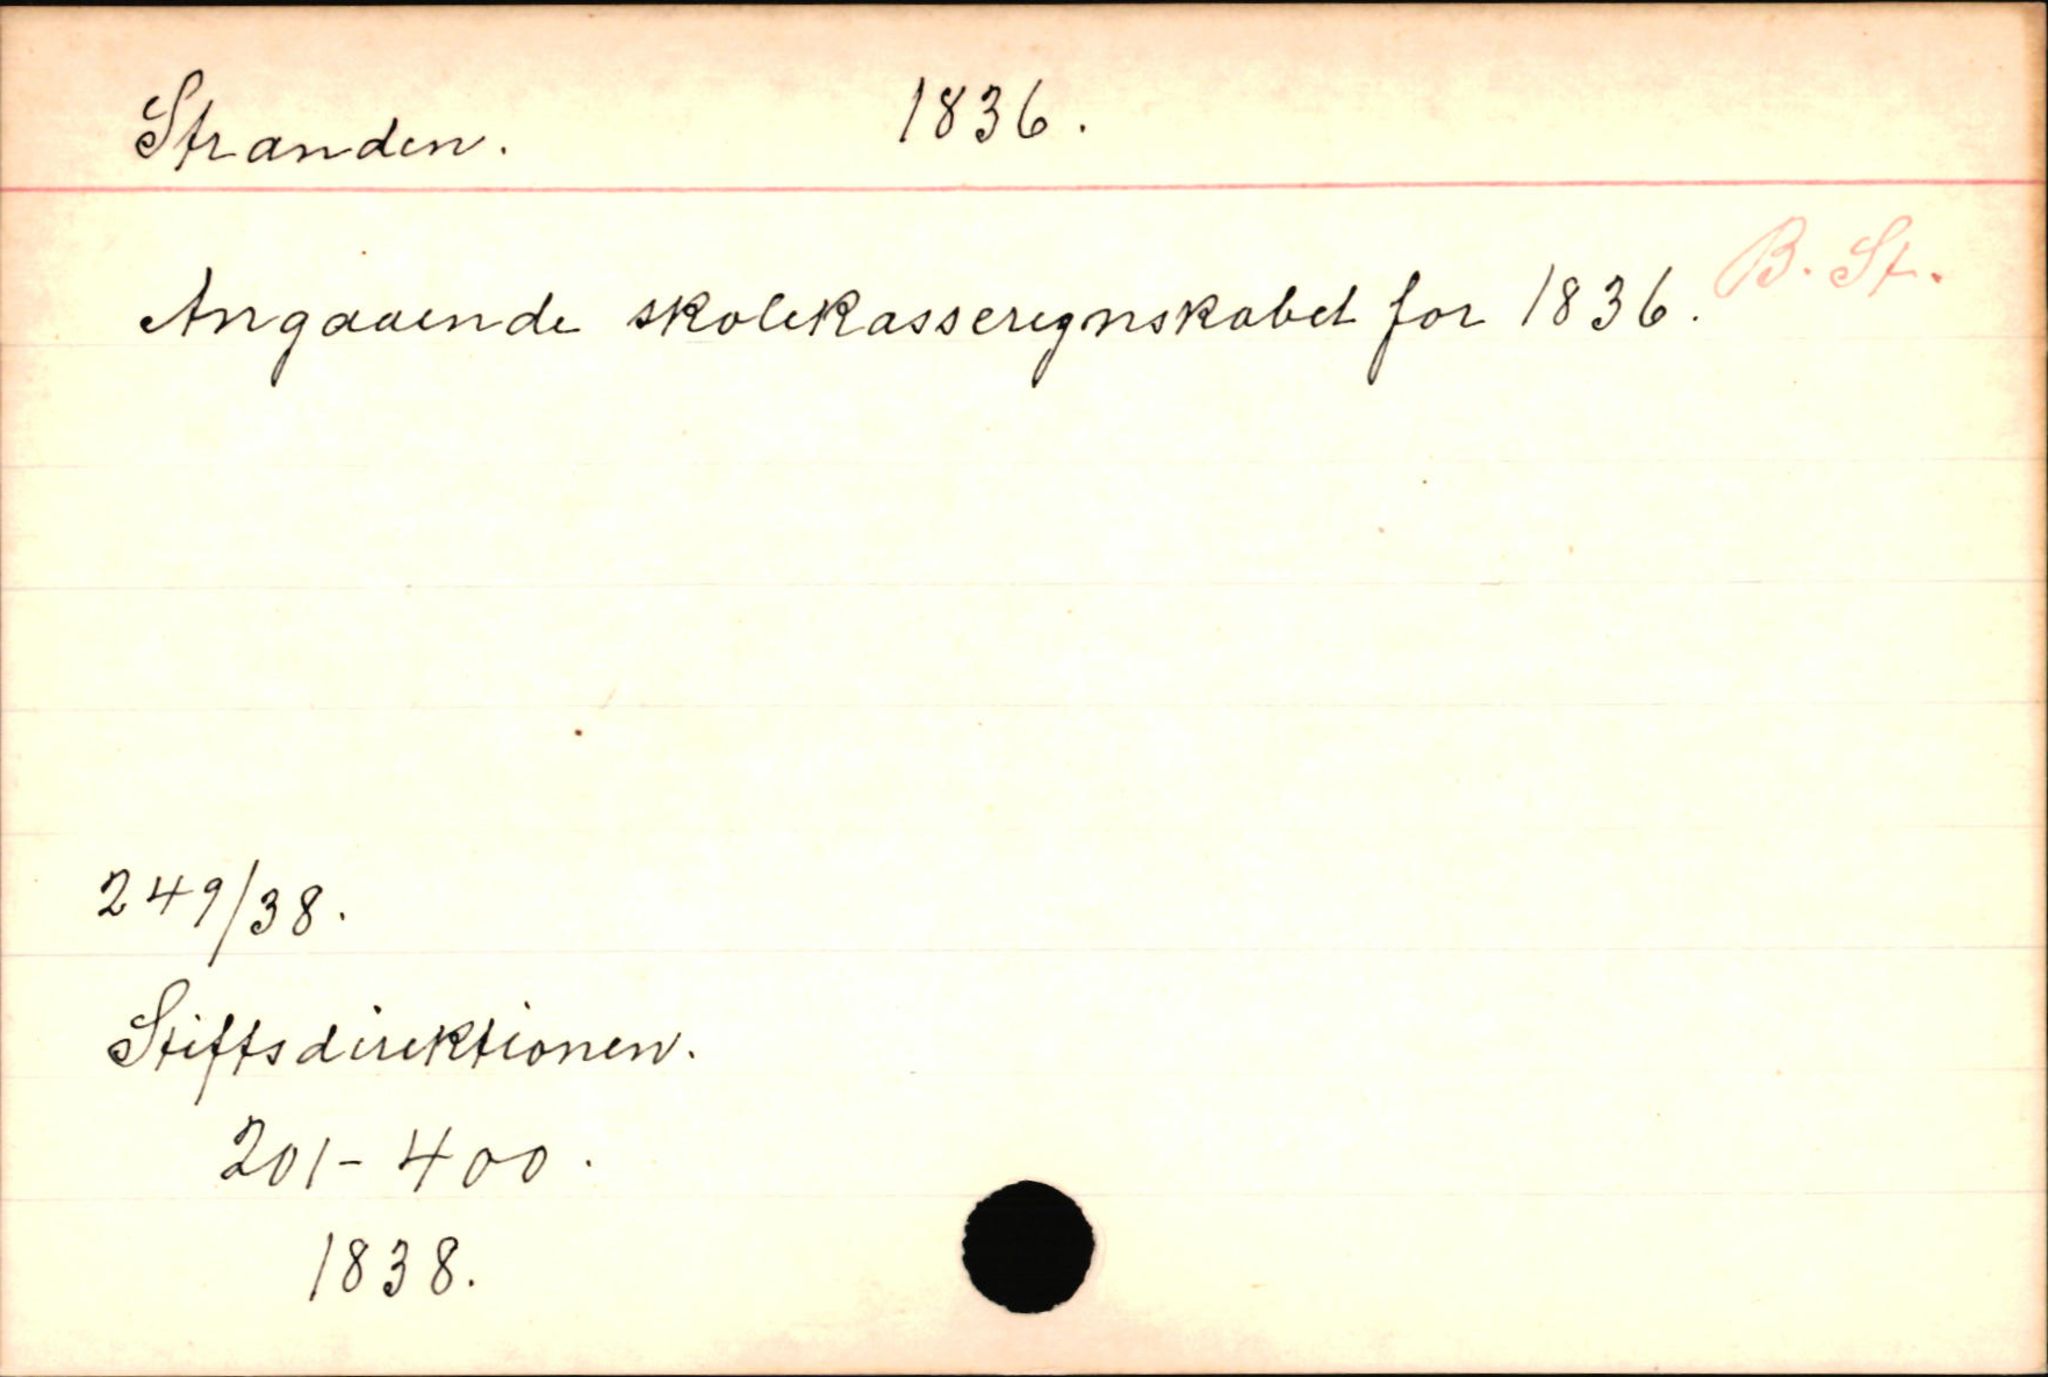 Stranden. 1836.
B. St.
Angaaende skolekasseregnskabet for 1836.
249/38.
Stiftsdirektionen.
201-400.
1838.